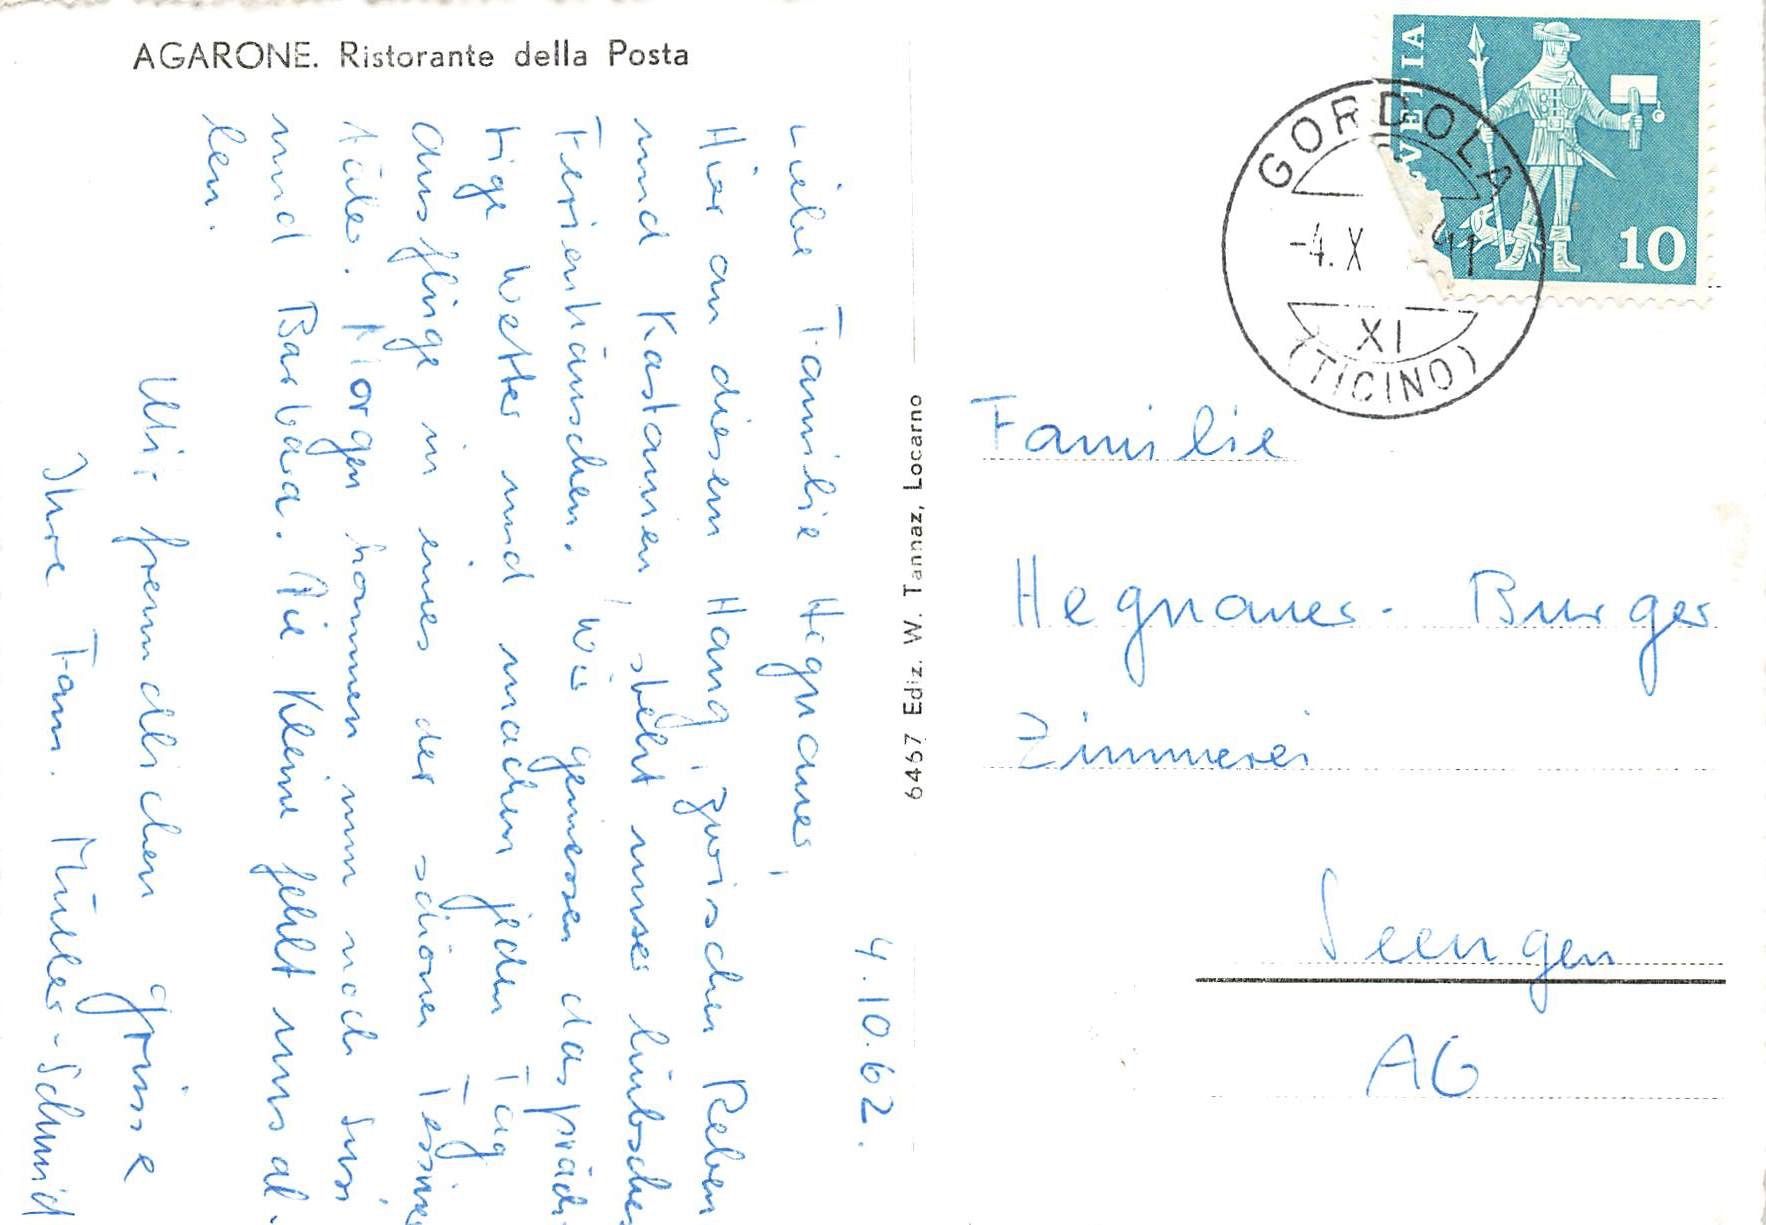 AGARONE. Ristorante della Posta
4.10.62.
Liebe Familie Hegnauer,
Hier an diesem Hang, zwischen Reben
und Kastanien, steht unser hübsches
Ferienhäuschen. Wir geniessen das präch-
tige Wetter und machen jeden Tag
Ausflüge in eines der schönen Tessiner
täler. Morgen kommen nun noch Susi
und Barbara. Die Kleine fehlt uns al-
len.
Mit freundlichen Grüsse
Ihre Fam. Müller-Schmid
6457 Ediz. W. Tannaz, Locarno
HELVETIA
10
GORDOLA
-4.X
XI
(TICINO)
Familie
Hegnauer-Burger
Zimmerei
Seengen
AG